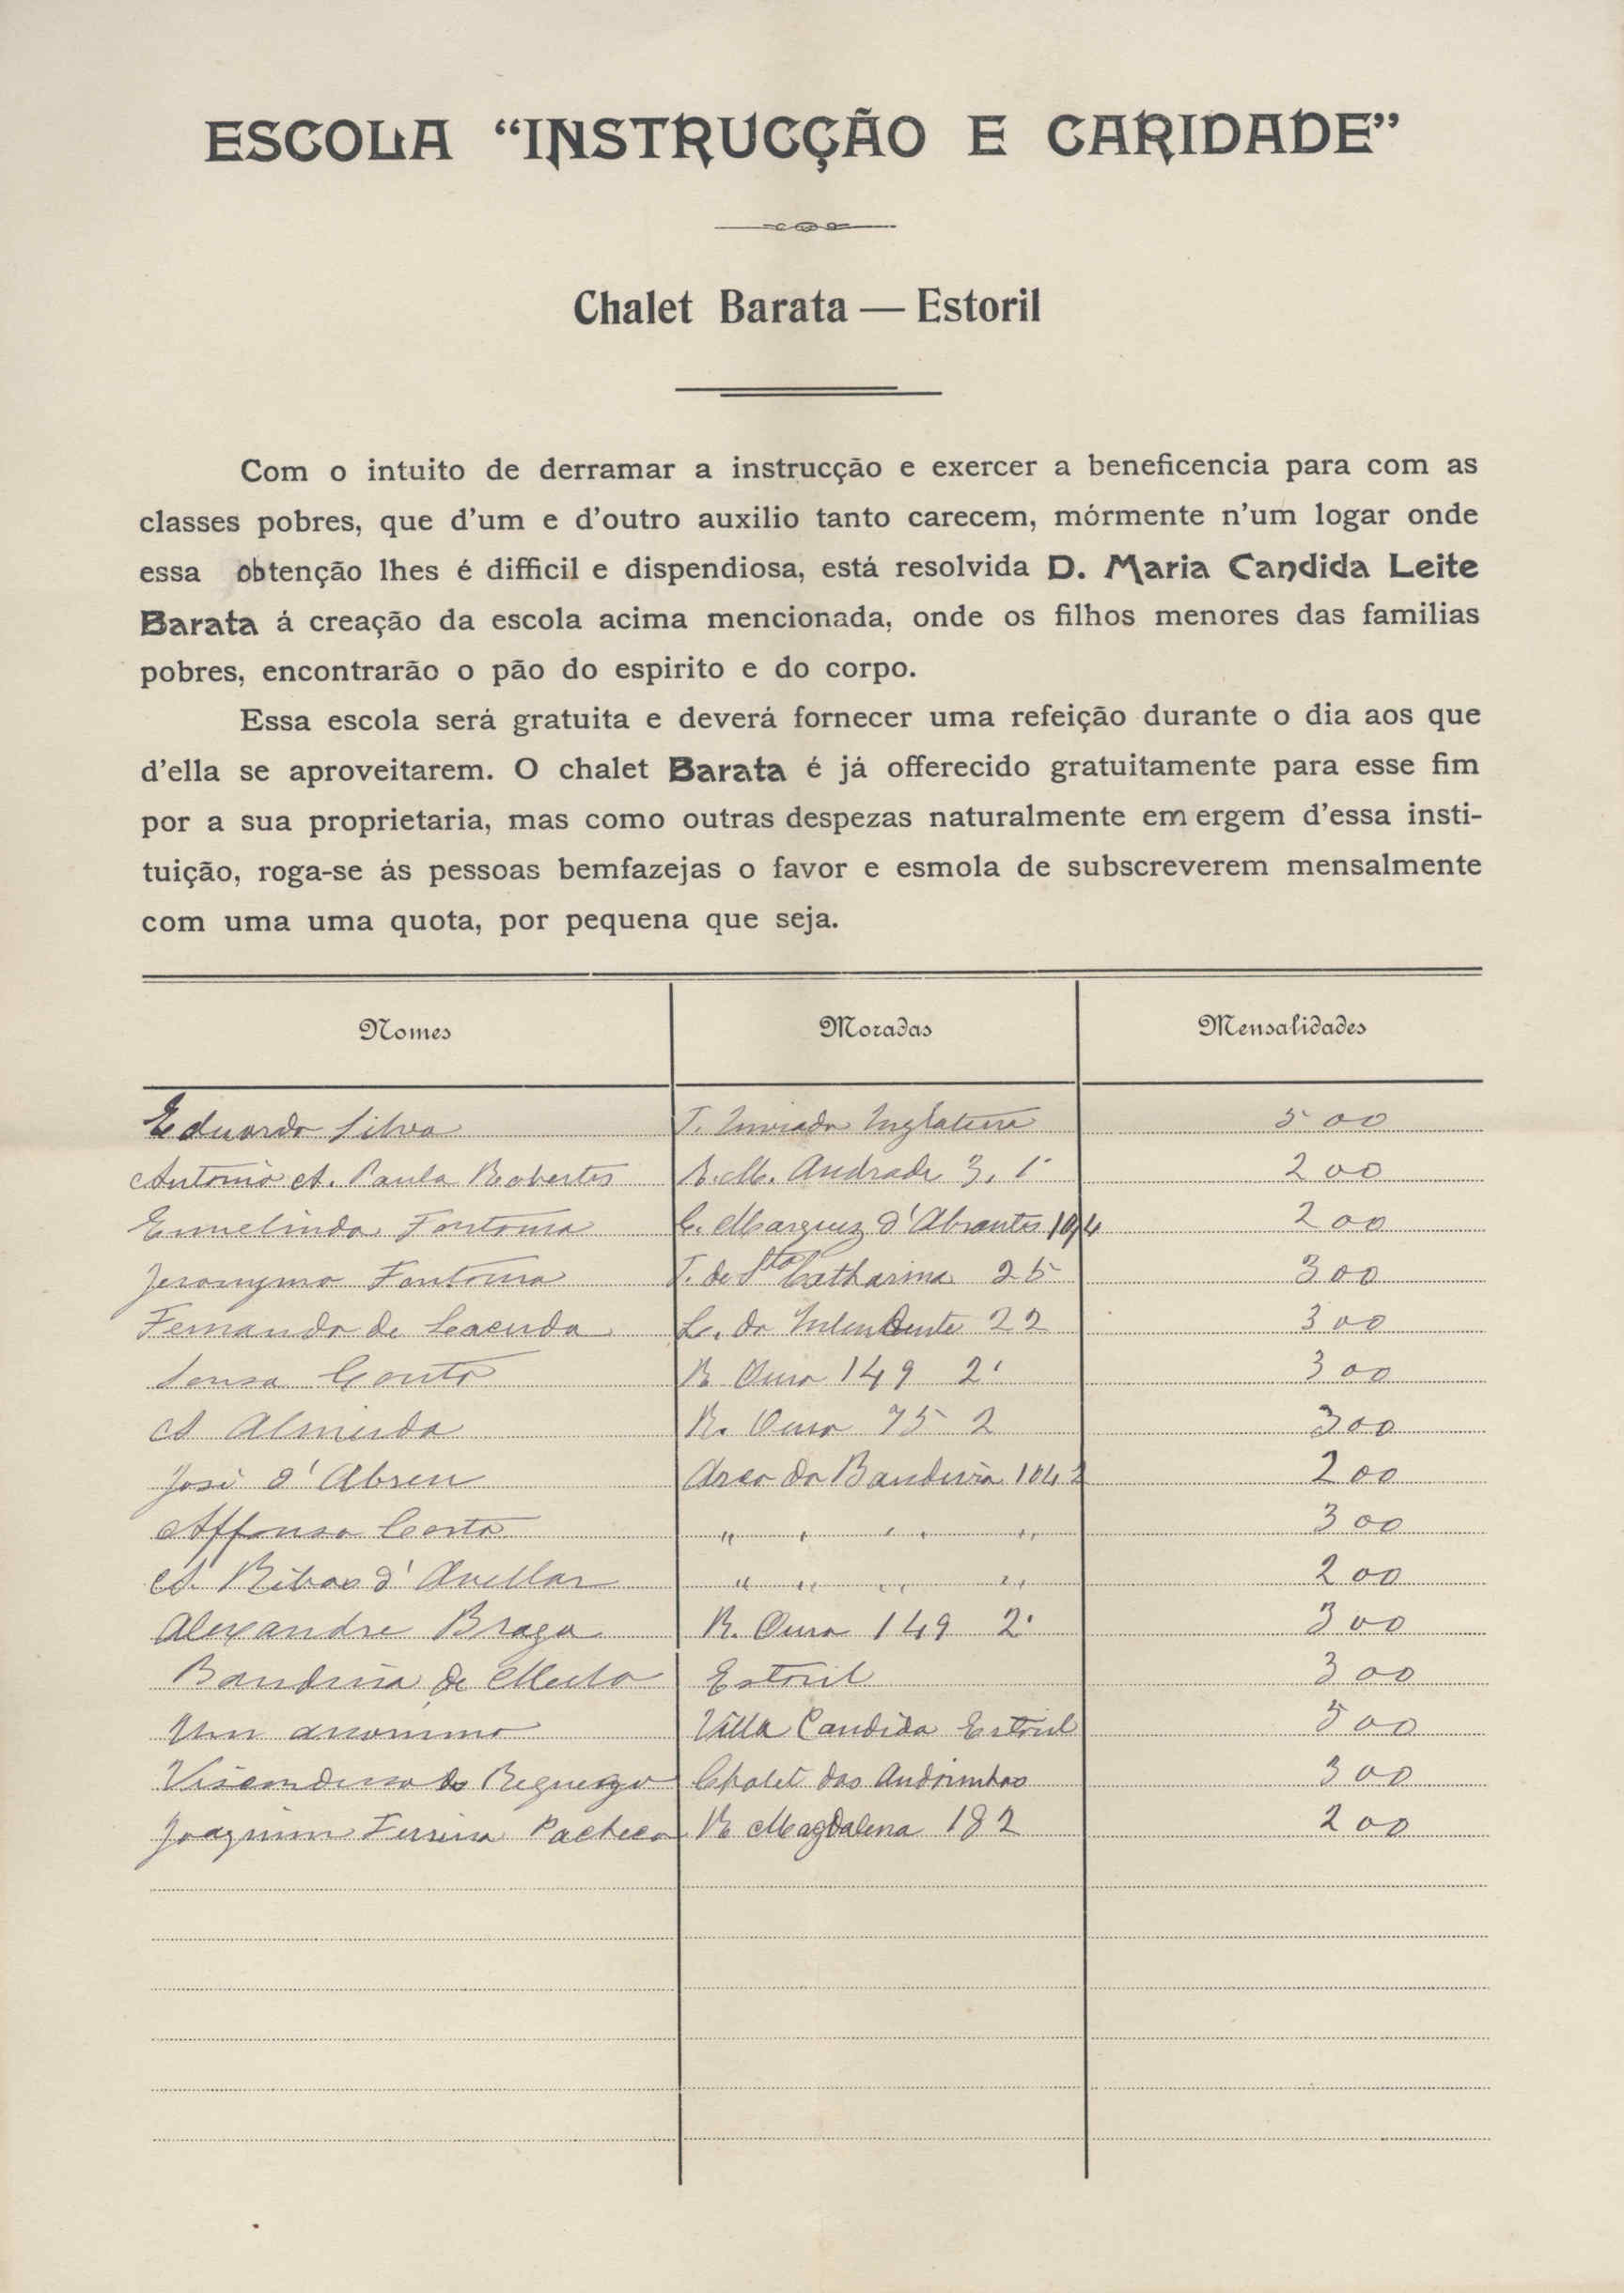 ESCOLA “INSTRUCÇÃO E CARIDADE”
Chalet Barata — Estoril
Com o intuito de derramar a instrucção e exercer a beneficencia para com as
classes pobres, que d’um e d’outro auxilio tanto carecem, mórmente n’um logar onde
essa obtenção lhes é difficil e dispendiosa, está resolvida D. Maria Candida Leite
Barata á creação da escola acima mencionada, onde os filhos menores das familias
pobres, encontrarão o pão do espirito e do corpo.
Essa escola será gratuita e deverá fornecer uma refeição durante o dia aos que
d’ella se aproveitarem. O chalet Barata é já offerecido gratuitamente para esse fim
por a sua proprietaria, mas como outras despezas naturalmente em ergem d’essa insti-
tuição, roga-se ás pessoas bemfazejas o favor e esmola de subscreverem mensalmente
com uma uma quota, por pequena que seja.
Nomes Moradas Mensalidades
Eduardo Silva T. Enviado Inglaterra 500
Antonio A. Paula Robertes R. M. Andrade 3, 1º 200
Ermelinda Fontoura C. Marquez d'Abrantes 104 200
Jeronymo Fontoura T. de Sta Catharina 25 300
Fernando de Lacerda L. do Intendente 22 300
Sousa Couto R Ouro 149 2º 300
A Almeida R. Ouro 75 2 300
José d'Abreu Arco do Bandeira 104 2 200
Affonso Costa " " " " " 300
A. Ribas d'Avellar " " " " 200
Alexandre Braga R. Ouro 149 2º 300
Bandeira de Mello Estoril 300
Um anonimo Villa Candida Estoril 500
Viscondessa do Reguengo Chalet das Andorinhas 300
Joaquim Ferreira Pacheco R Magdalena 182 200